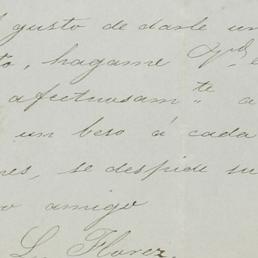 gusto de darle un
to, hagame Vd. e
afectuosamte a
un beso á cada
nes, se despide su
o amigo
L. Florez.